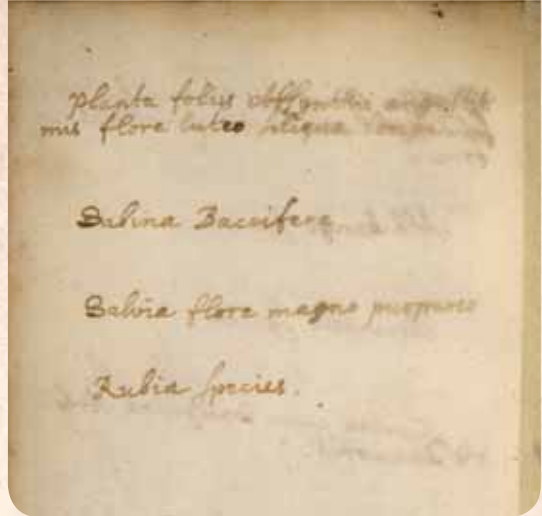 Planta foliis absynthii angustis
mis flore luteo siliqua longa
Sabina Baccifera
Salvia flore magno purpureo
Rubia species.